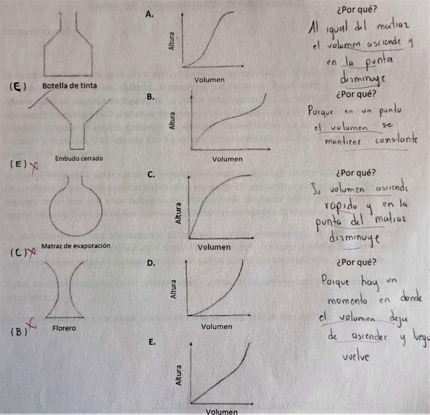 A.
Altura
Volumen
¿Por qué?
Al igual del matraz
el volumen asciende y
en la punta
disminuye
(E) Botella de tinta
B.
Altura
Volumen
¿Por qué?
Porque en un punto
el volumen se
mantiene constante
(E) x Embudo cerrado
C.
Altura
Volumen
¿Por qué?
Su volumen asciende
rapido y en la
punta del matraz
disminuye
(C) x Matraz de evaporación
D.
Altura
Volumen
¿Por qué?
Porque hay un
momento en donde
el volumen deja
de ascender y luego
vuelve
(B) x Florero
E.
Altura
Volumen